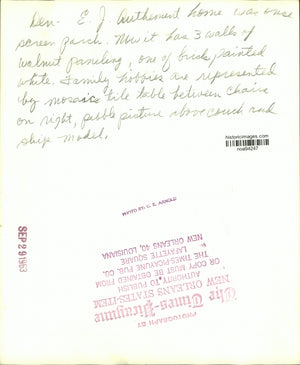 Den- E. J. Authement home was once
screen porch. Now it has 3 walls of
walnut paneling, one of brick painted
white. Family hobbies are represented
by mosaic tile table between chairs
on right, pebble picture above couch and
ship model.
historicimages.com
noa94247
PHOTO BY: C. E. ARNOLD
SEP 29 1963
PHOTOGRAPH BY
The Times-Picayune
NEW ORLEANS STATES-ITEM
AUTHORITY TO PUBLISH
OR COPY MUST BE OBTAINED FROM
THE TIMES-PICAYUNE PUB. CO.
LAFAYETTE SQUARE
NEW ORLEANS 40, LOUISIANA